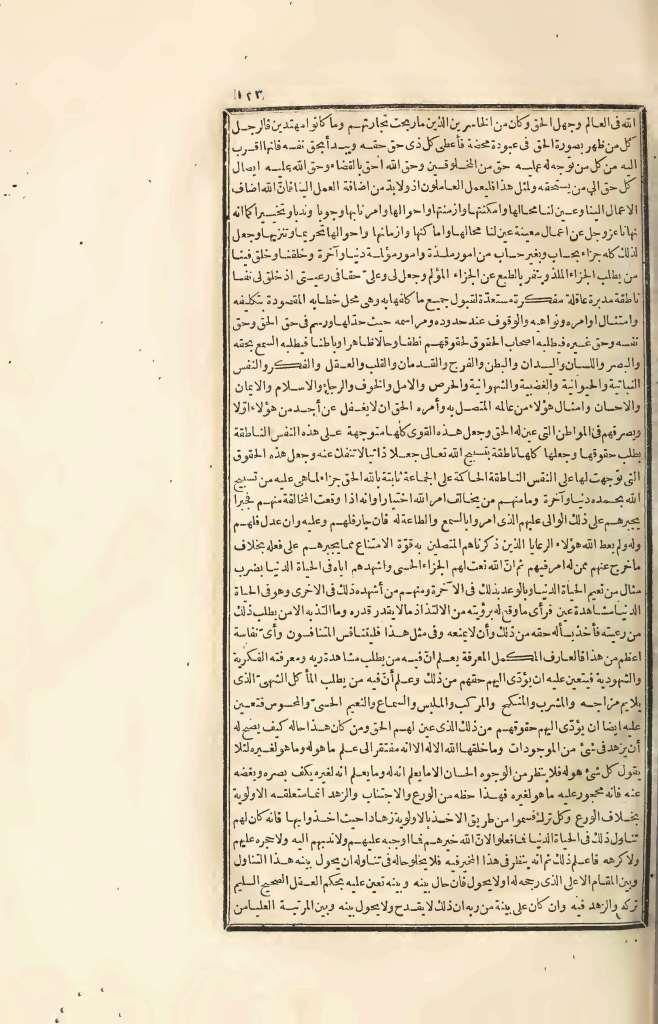 ١٢٣
الله فى العالم وجهل الحق وكان من الخاسرين الذين ما ربحت تجارتهم وما كانوا مهتدين فالرجل
كل من ظهر بصورة الحق فى عبودة محضة فأعطى كل ذى حق حقه ويبدأ بحق نفسه فانها أقرب
اليه من كل من توجه له عليه حق من المخلوقين وحق الله أحق بالقضاء وحق الله عليه ايصال
كل حق الى من يستحقه ولمثل هذا فليعمل العاملون اذ ولابد من اضافة العمل الينا فان الله اضاف
الاعمال الينا وعين لنا محالها وامكنتها وازمنتها واحوالها وامرنا بها وجوبا وندبا وتخييرا كما انه
نهانا عز وجل عن اعمال معينة عين لنا محالها واماكنها وازمانها واحوالها تحريما وتنزيها وجعل
لذلك كله جزاء بحساب وبغير حساب من امور ملذة وامور مؤلمة دنيا وآخرة وخلقنا وخلق فينا
من يطلب الجزاء الملذ وينفر بالطبع عن الجزاء المؤلم وجعل لى وعلى حقا فى رعيتى اذ خلق لى نفسا
ناطقة مدبرة عاقلة مفكرة مستعدة لقبول جميع ما كلفها به وهى محل خطابه المقصودة بتكليفه
وامتثال اوامره ونواهيه والوقوف عند حدوده ومراسمه حيث حد لها ورسم فى حق الحق وحق
نفسه وحق غيره فيطلبه اصحاب الحقوق بحقوقهم نطقا وحالا ظاهرا وباطنا فيطلبه السمع بحقه
والبصر واللسان واليدان والبطن والفرج والقدمان والقلب والعقل والفكر والنفس
النباتية والحيوانية والغضبية والشهوانية والحرص والامل والخوف والرجاء والاسلام والايمان
والاحسان وامثال هؤلاء من عالمه المتصل به وأمره الحق ان لا يغفل عن أحد من هؤلاء اولا
ويصرفهم فى المواطن التى عين له الحق وجعل هذه القوى كلها متوجهة على هذه النفس الناطقة
بطلب حقوقها وجعلها كلها ناطقة بتسبيح الله تعالى جعلا ذاتيا لا تنفك عنه وجعل هذه الحقوق
التى توجهت لها على النفس الناطقة الحاكمة على الجماعة ثابتة بالله الحق جزاء لما هى عليه من تسبيح
الله بحمده دنيا وآخرة وما منهم من يخالف امر الله اختيارا وانه اذا وقعت المخالفة منهم فجبرا
يجبرهم على ذلك الوالى عليهم الذى امروا بالسمع والطاعة له فان جار فلهم وعليه وان عدل فلهم
وله ولم يعط الله هؤلاء الرعايا الذين ذكرناهم المتصلين به قوة الامتناع مما يجبرهم على فعله بخلاف
ما خرج عنهم ممن له امر فيهم ثم ان الله نعت لهم الجزاء الحسى واشهدهم اياه فى الحياة الدنيا بضرب
مثال من نعيم الحياة الدنيا وبالوعد بذلك فى الآخرة ومنهم من أشهده ذلك فى الاخرى وهو فى الحياة
الدنيا مشاهدة عين فرأى ما وقع له برؤيته من الالتذاذ ما لا يقدر قدره وما التذ به الا من يطلب ذلك
من رعيته فأخذ يسأله حقه من ذلك وأن لا يمنعه وفى مثل هذا فليتنافس المتنافسون وأى نفاسة
اعظم من هذا فالعارف المكمل المعرفة يعلم ان فيه من يطلب مشاهدة ربه ومعرفته الفكرية
والشهودية فيتعين عليه ان يؤدى اليهم حقهم من ذلك وعلم ان فيه من يطلب المأكل الشهى الذى
يلايم مزاجه والمشرب والمنكح والمركب والملبس والسماع والنعيم الحسى والمحسوس فتعين
عليه ايضا ان يؤدى اليهم حقوقهم من ذلك الذى عين لهم الحق ومن كان هذا حاله كيف يصح له
أن يزهد فى شئ من الموجودات وما خلقها الله الا له الا انه مفتقر الى علم ما هو له وما هو لغيره لئلا
يقول كل شئ هو له فلا ينظر من الوجوه الحسان الا ما يعلم انه له وما يعلم انه لغيره يكف بصره ويغضه
عنه فانه محجور عليه ما هو لغيره فهذا حظه من الورع والاجتناب والزهد انما متعلقه الاولوية
بخلاف الورع وكل ترك قسموا من طريق الاخذ بالاولوية زهادا حيث اخذوا بها فانه كان لهم
تناول ذلك فى الحياة الدنيا فما فعلوا لان الله خيرهم فما اوجبه عليهم ولا ندبهم اليه ولا حجره عليهم
ولا كرهه فاعلم ذلك ثم انه ينظر فى هذا المخير فيه فلا يخلو حاله فى تناوله ان يحول بينه هذا التناول
وبين المقام الاعلى الذى رجحه له اولا يحول فان حال بينه وبينه تعين عليه بحكم العقل الصحيح السليم
تركه والزهد فيه وان كان على بينة من ربه ان ذلك لا يقدح ولا يحول بينه وبين المرتبة العليا من